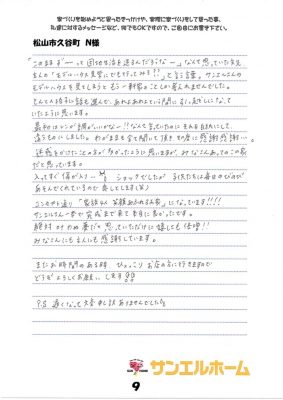 家づくりを始めようと思ったきっかけや、実際に家づくりをして思った事、
私達に対するメッセージなど、何でもOKですので、ご自由にお書き下さい。
松山市久谷町 N様
このまま ずーっと 団地生活を送るんだろうな～ なんて思っていた矢先
主人の「モデルハウス見学にでも行ってみる??」と言う言葉。サンエルさんの
モデルハウスを見てしまうと もう一軒家のことしか考えれませんでした。
とんとん拍子に話も進んで、あれよあれよと言う間に 引っ越しになって
いたように思います。
最初はシンプルがいいかなー!!なんて言っていたのに それを忘れたにして
違うものにしました。わがままを全て聞いて頂き 本当に感謝感謝…。
迷惑をかけたことの方が多かったように思いますが、みなさんあってのこの家
だと思っています。
入ってすぐ 傷が入り… ショックでしたが 子供たちは毎日のびのび
あそんでくれているので 楽しそうです(笑)
コンセプト通り「家族みんな 笑顔あふれるお家」になっています!!!!
サンエルさん一番で完成まで来て本当に良かったです。
絶対叶わぬ夢だと思っていただけに嬉しさも倍増!!
みなさんにも主人にも感謝しています。
またお時間のある時 ひょっこり お店の方に行きますので
どうぞよろしくお願い します
P.S 遅くなって 大変申し訳ありませんでした。
サンエルホーム
9